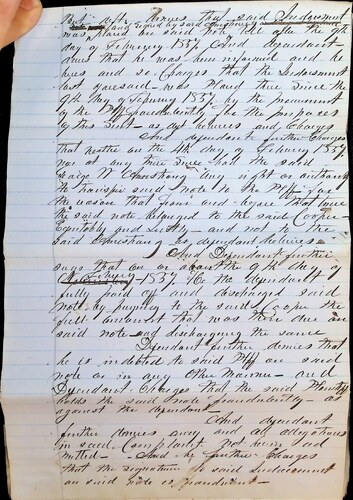 But after denies that said Indorsement
was placed on said note till after the 9th
day of February 1857. And dependant
avers that he was been informed and be
lieves and so charges that the Indorsement
last aforesaid was placed there since the
9th day of February 1857 by the procurement
of the Plff fraudulently for the purposes
of this suit as dept believes and charges
And dependant further charges
that neither on the 4th day of February 1857
nor at any time since had the said
George W Armstrong any right or authority
to transfer said note to the Plff for
the reason that from and before that time
the said note belonged to the said Cooper
Equitably and justly and not to the
said Armstrong as dependant believes
And Dependant further
says that on or about the 9th day of
February 1857 he the dependant
fully paid off and discharged said
note by paying to the said Cooper the
full amount that was there due on
said note and discharging the same
Dependant further denies that
he is indebted to said Plff on said
note or in any other manner and
Dependant charges that the said Plaintiff
holds the said note fraudulently as
against the dependant
And dependant
further denies every and all allegations
in said Complaint not herein ad
mitted. And he further charges
that the signature to said Indorsement
on said note is fraudulent